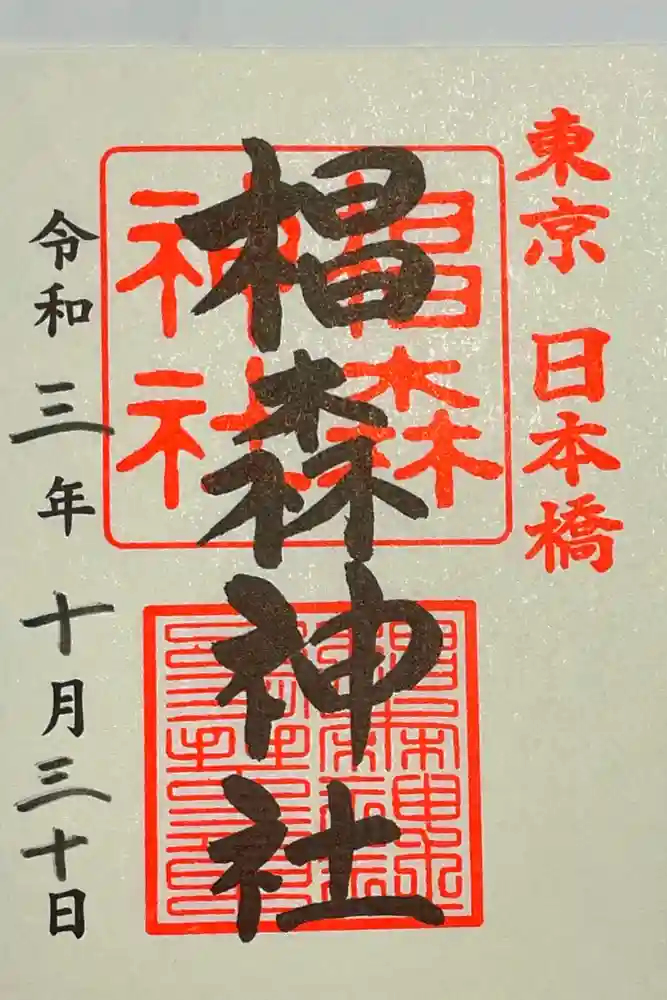 東京 日本橋
椙森神社
椙森
神社
令和三年十月三十日